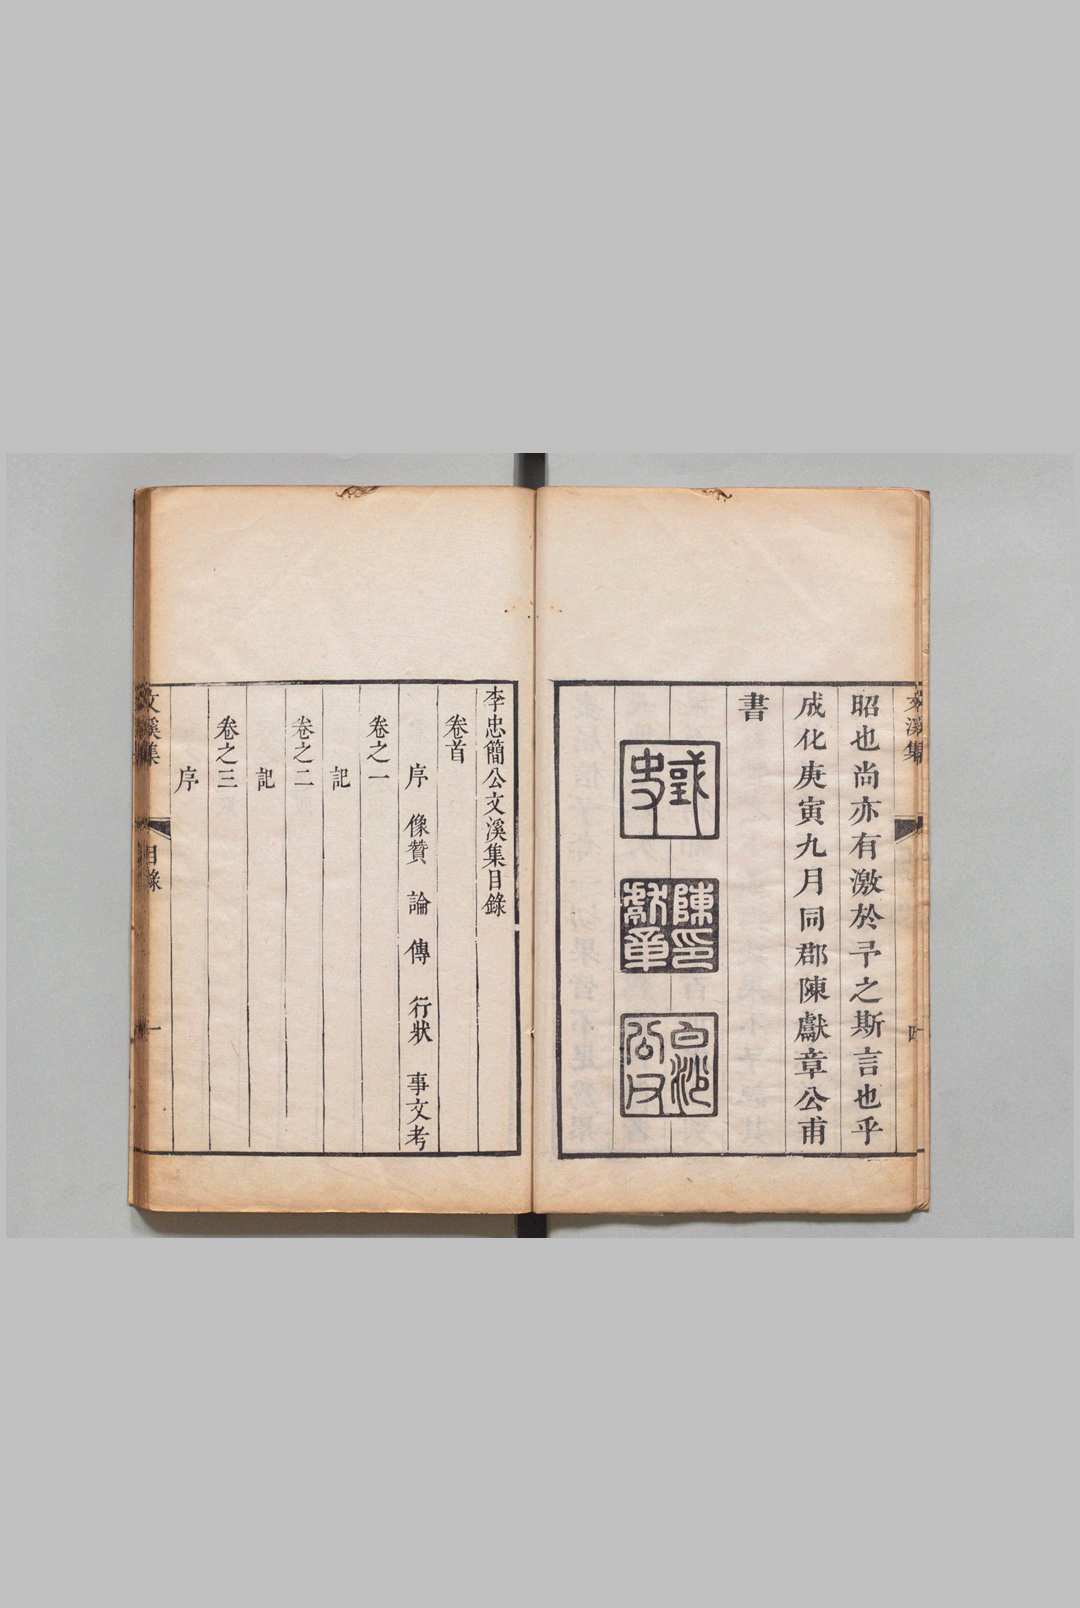 文溪集
昭也尚亦有激於予之斯言也乎
成化庚寅九月同郡陳獻章公甫
書
陳印獻章
白沙
李忠簡公文溪集目錄
卷首
序 像贊 論 傳 行狀 事文考
卷之一
記
卷之二
記
卷之三
序
文溪集 目錄 一